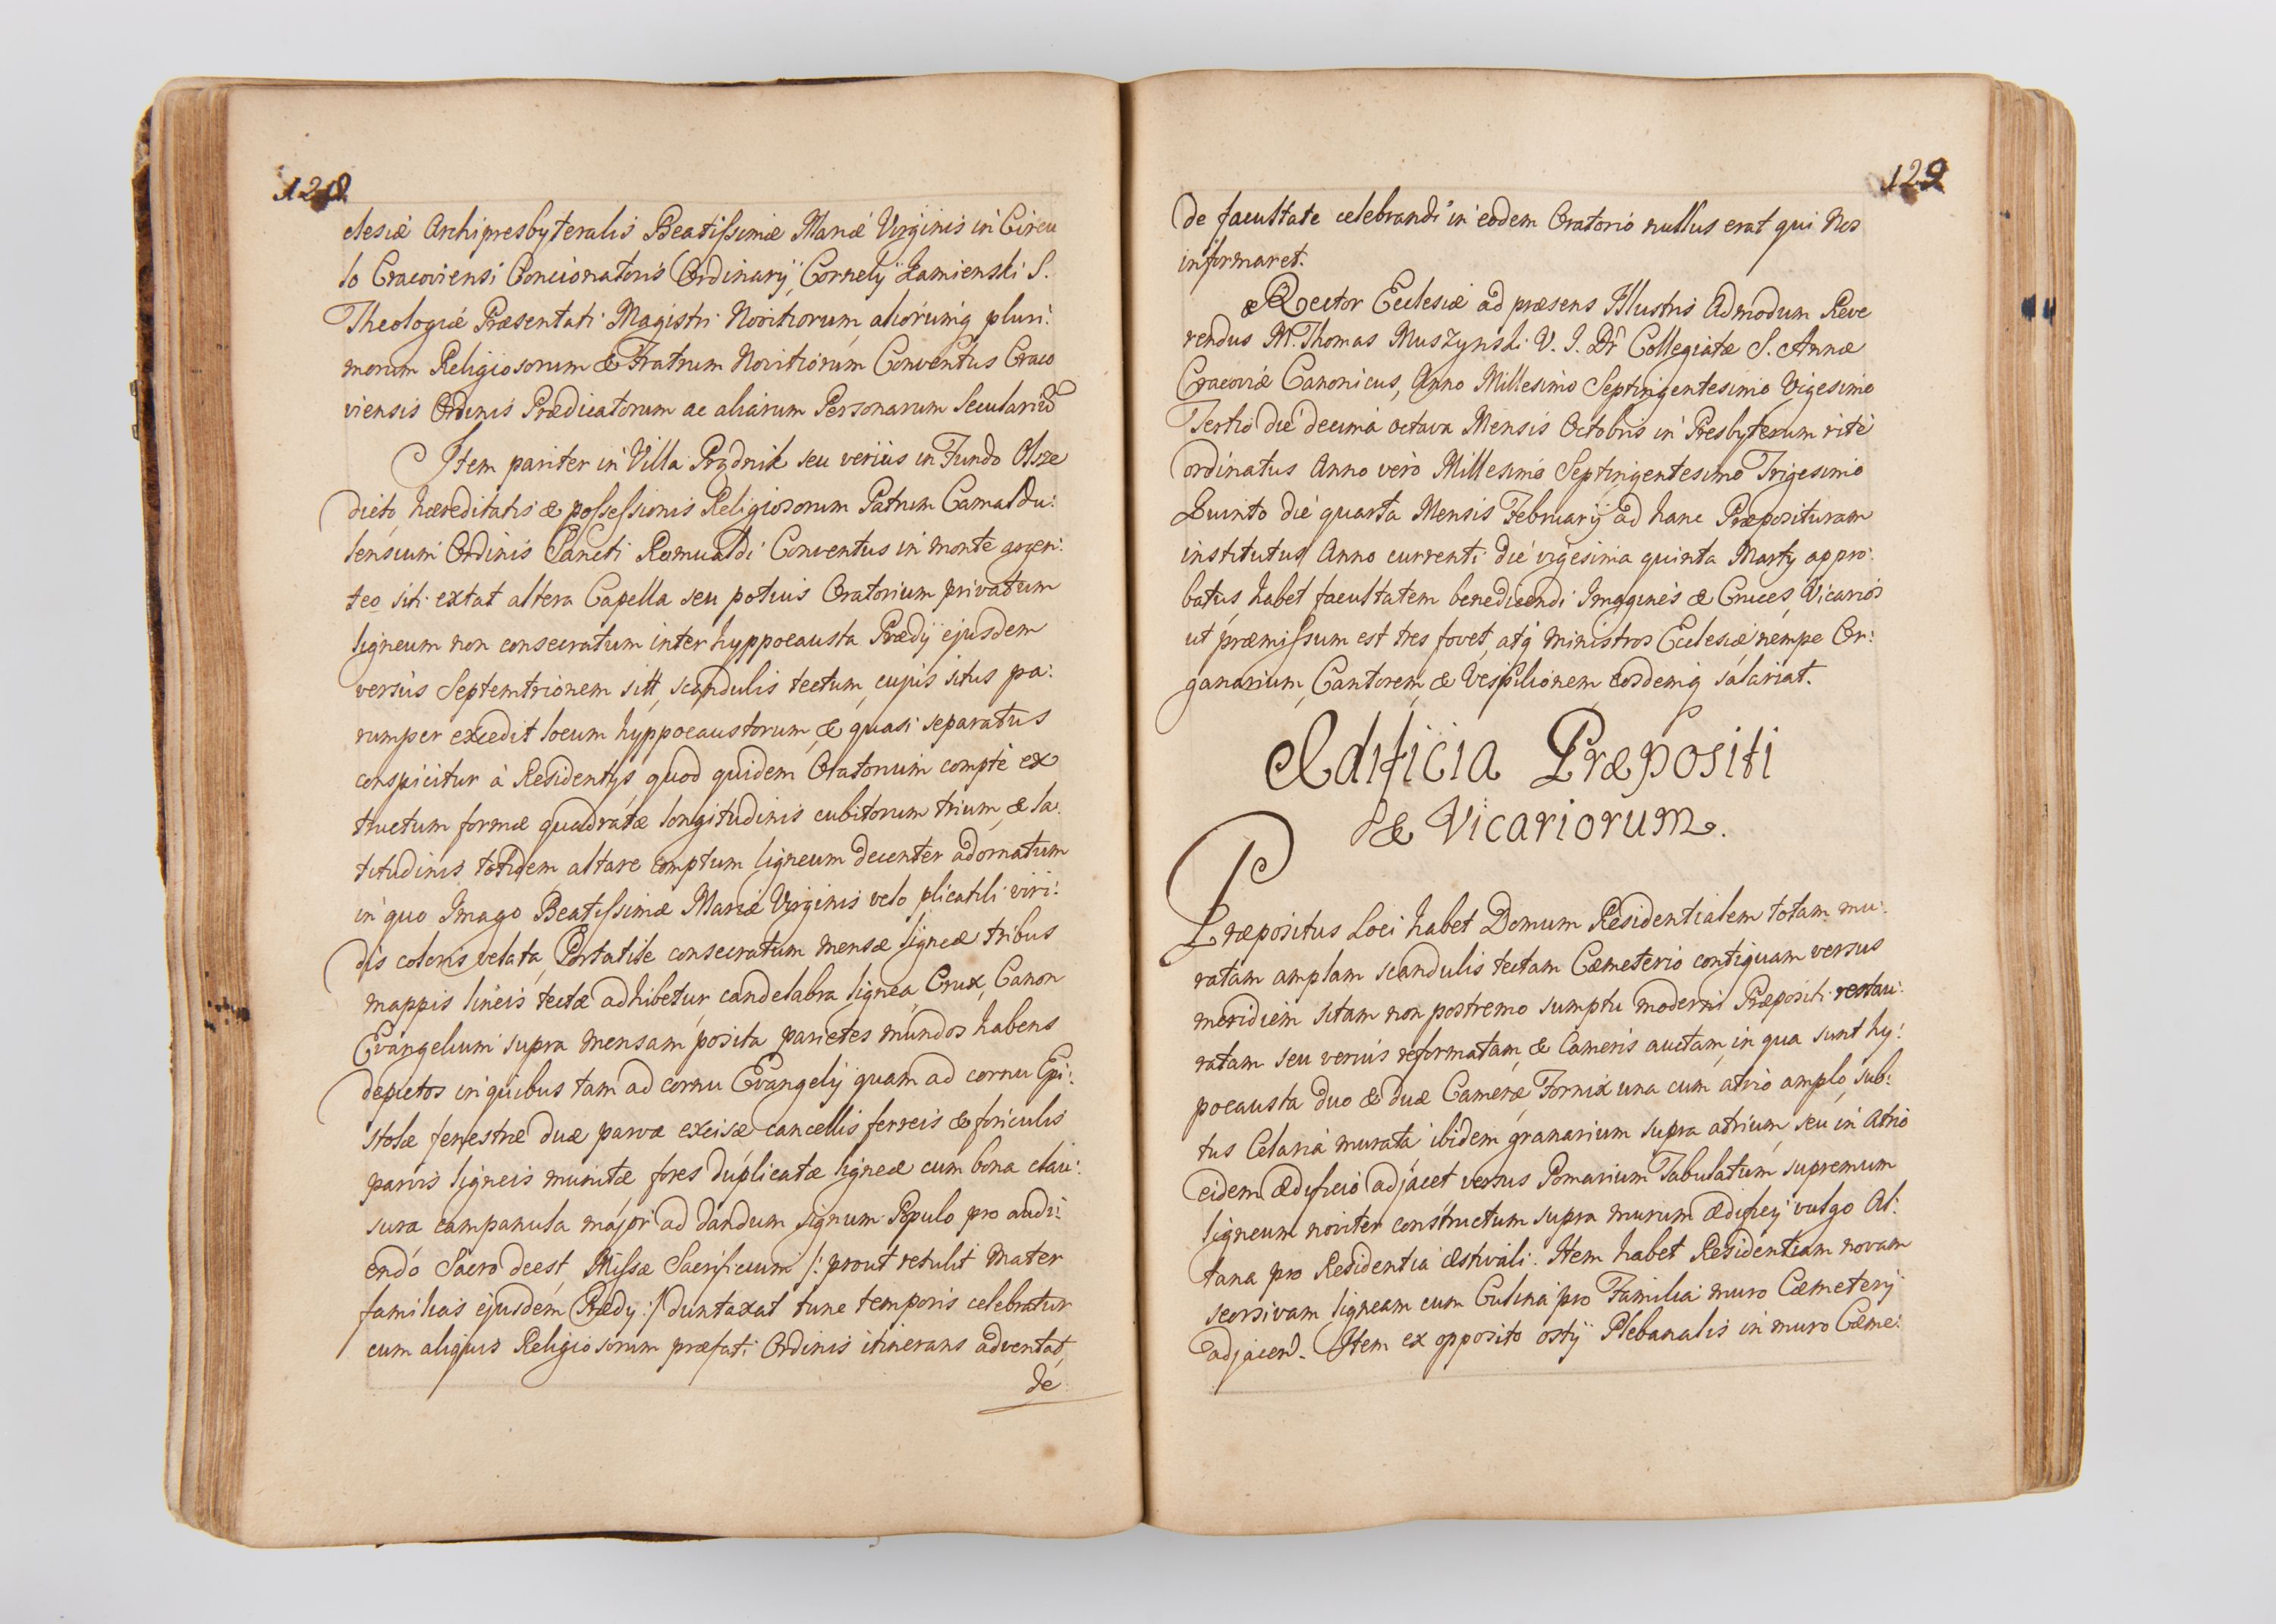 128
clesiæ Archipresbyteralis Beatissimæ Mariæ Virginis in Circu
lo Cracoviensi Concionatoris Ordinarij, Cornelij Kamienski S.
Theologiæ Præsentati Magistri Novitiorum, aliorumq pluri:
morum Religiosorum & Fratrum Novitiorum Conventus Craco
viensis Ordinis Prædicatorum ac aliarum Personarum Seculariũ
Item pariter in Villa Prądnik seu veriùs in Fundo Olsze
dicto, hæreditatis & possessionis Religiosorum Patrum Camaldu:
lensium Ordinis Sancti Romualdi Conventus in monte argen:
teo siti extat altera Capella seu potius Oratorium privatum
ligneum non consecratum inter hyppocausta Prædij ejusdem
versùs Septemtrionem sitt, scandulis tectum, cujus situs pa:
rumper excedit locum hyppocaustorum, & quasi separatus
conspicitur à Residentijs, quod quidem Oratorium comptè ex
tructum formæ quadratæ longitudinis cubitorum trium, & la:
titudinis totidem altare comptum ligneum decenter adornatum
in quo Imago Beatissimæ Mariæ Virginis velo plicatili viri:
dis coloris velata, Portatile consecratum mensæ ligneæ tribus
mappis lineis tectæ adhibetur, candelabra lignea, Crux, Canon
Evangelium supra mensam posita parietes mundos habens
depictos in quibus tam ad cornu Evangelij quam ad cornu Epi:
stolæ fenestræ duæ parvæ excisæ cancellis ferreis & foriculis
parvis ligneis munitæ fores duplicatæ ligneæ cum bona clau:
sura campanula major ad dandum signum Populo pro audi:
endo Sacro deest, Missæ Sacrificium /: prout retulit Mater
familias ejusdem Prædij :/ duntaxat tunc temporis celebratur
cum aliquis Religiosorum præfati Ordinis itinerans adventat,
de
129
de facultate celebrandi in eodem Oratorio nullus erat qui Nos
informaret.
Rector Ecclesiæ ad præsens Illustris Admodum Reve
rendus M. Thomas Muszynski V. I. Dr Collegiatæ S. Annæ
Cracoviæ Canonicus, Anno Millesimo Septingentesimo Vigesimo
Tertio die decima octava Mensis Octobris in Presbyterum ritè
ordinatus Anno verò Millesimo Septingentesimo Trigesimo
Quinto die quarta Mensis Februarij ad hanc Præposituram
institutus Anno currenti die vigesima quinta Martij appro:
batus, habet facultatem benedicendi Imagines & Cruces, Vicarios
ut præmissum est tres fovet, atq ministros Ecclesiæ nempe Or:
ganarium, Cantorem, & Vespilionem, eosdemq salariat.
Ædificia Præpositi
& Vicariorum.
Præpositus Loci habet Domum Residentialem totam mu:
ratam amplam scandulis tectam Cæmeterio contiguam versus
meridiem sitam non postremo sumptu moderni Præpositi restau:
ratam seu veriùs reformatam, & Cameris auctam, in qua sunt hy:
pocausta duo & duæ Cameræ, Fornix una cum atrio amplo, sub:
tus Celaria murata ibidem granarium supra atrium, seu in Atrio
eidem ædificio adjacet versus Pomarium Tabulatum supremum
ligneum noviter constructum supra murum ædificij vulgo Al:
tana pro Residentia æstivali. Item habet Residentiam novam
seorsivam ligneam cum Culina pro Familia muro Cæmeterij
adjacen. Item ex opposito ostij Plebanalis in muro Cæme: